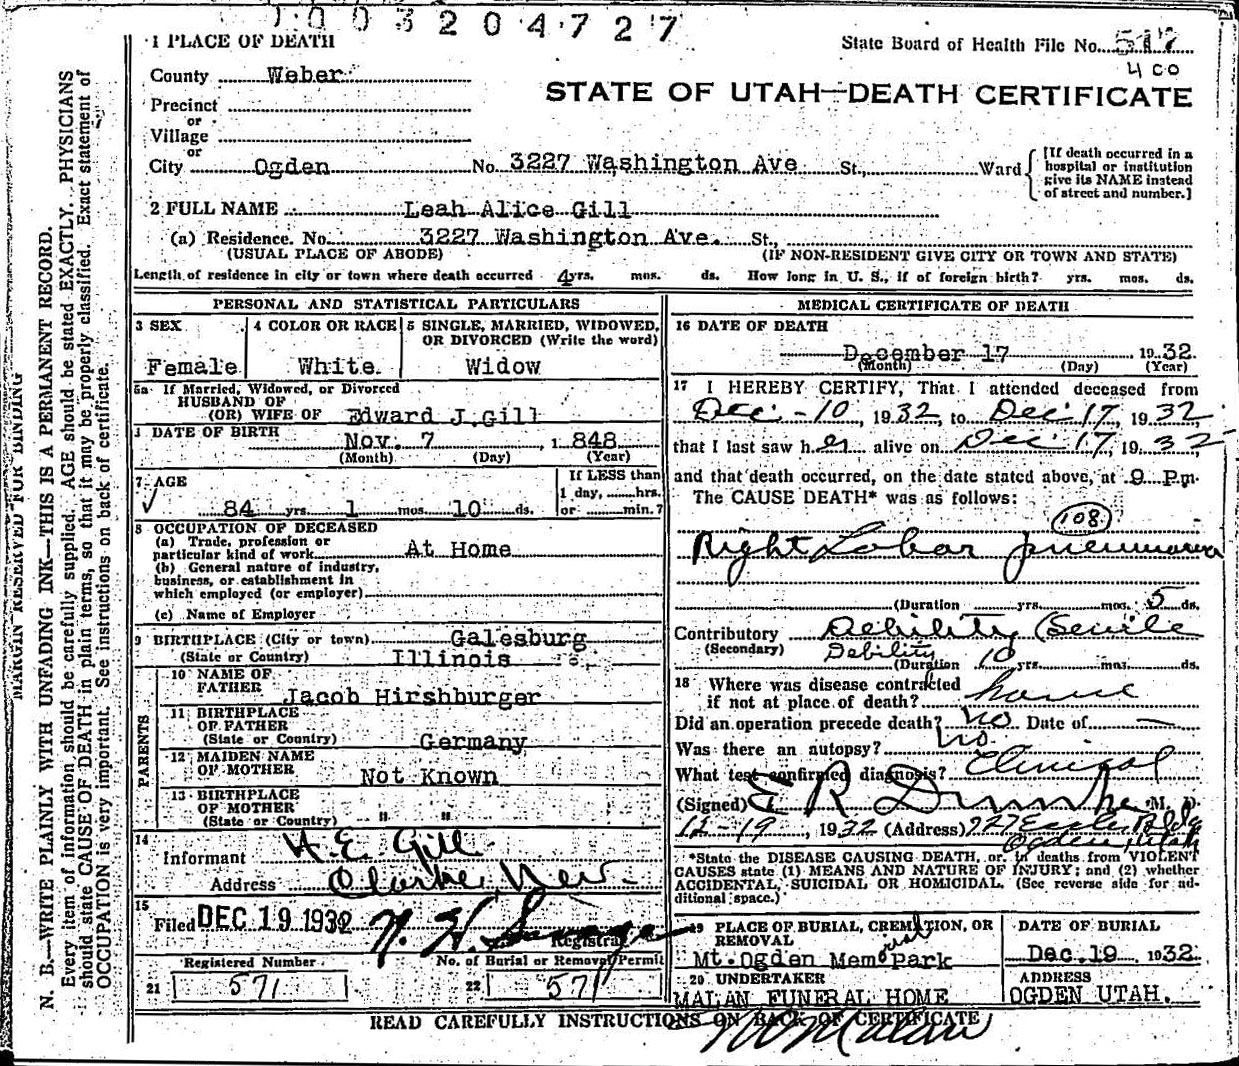 1003204727
1 PLACE OF DEATH
State Board of Health File No. 517
400
County Weber
STATE OF UTAH—DEATH CERTIFICATE
Precinct
or
Village
or
City Ogden No. 3227 Washington Ave St., Ward
[If death occurred in a hospital or institution give its NAME instead of street and number.]
2 FULL NAME Leah Alice Gill
(a) Residence. No. 3227 Washington Ave. St.,
(USUAL PLACE OF ABODE) (IF NON-RESIDENT GIVE CITY OR TOWN AND STATE)
Length of residence in city or town where death occurred 4 yrs. mos. ds. How long in U. S., if of foreign birth? yrs. mos. ds.
PERSONAL AND STATISTICAL PARTICULARS
3 SEX
Female
4 COLOR OR RACE
White.
5 SINGLE, MARRIED, WIDOWED, OR DIVORCED (Write the word)
Widow
5a If Married, Widowed, or Divorced
HUSBAND OF
(OR) WIFE OF Edward J. Gill
DATE OF BIRTH
Nov. 7 1848
(Month) (Day) (Year)
7 AGE
84 yrs. 1 mos. 10 ds.
If LESS than
1 day, hrs.
or min.?
8 OCCUPATION OF DECEASED
(a) Trade, profession or
particular kind of work At Home
(b) General nature of industry,
business, or establishment in
which employed (or employer)
(c) Name of Employer
9 BIRTHPLACE (City or town) Galesburg
(State or Country) Illinois
PARENTS
10 NAME OF
FATHER Jacob Hirshburger
11 BIRTHPLACE
OF FATHER
(State or Country) Germany
12 MAIDEN NAME
OF MOTHER Not Known
13 BIRTHPLACE
OF MOTHER
(State or Country) " "
14
Informant H. E. Gill
Address
15
Filed DEC 19 1932
Registrar
Registered Number No. of Burial or Removal Permit
21 571 22 571
MEDICAL CERTIFICATE OF DEATH
16 DATE OF DEATH
December 17 1932
(Month) (Day) (Year)
17 I HEREBY CERTIFY, That I attended deceased from
Dec. - 10, 1932, to Dec. 17, 1932,
that I last saw her alive on Dec. 17, 1932
and that death occurred, on the date stated above, at 9 P.m.
The CAUSE DEATH* was as follows:
108
Right Lobar pneumonia
(Duration yrs. mos. 5 ds.
Contributory Debility (Senile
(Secondary) Debility
(Duration 10 yrs. mos. ds.
18 Where was disease contracted
if not at place of death? home
Did an operation precede death? No Date of —
Was there an autopsy? No.
What test confirmed diagnosis? Clinical
(Signed) E R M. D.
12-19, 1932 (Address)
Ogden, Utah
*State the DISEASE CAUSING DEATH, or, in deaths from VIOLENT
CAUSES state (1) MEANS AND NATURE OF INJURY; and (2) whether
ACCIDENTAL, SUICIDAL OR HOMICIDAL. (See reverse side for ad-
ditional space.)
19 PLACE OF BURIAL, CREMATION, OR
REMOVAL
Mt. Ogden Memorial Park
DATE OF BURIAL
Dec. 19 1932
20 UNDERTAKER
MALAN FUNERAL HOME
ADDRESS
OGDEN UTAH.
READ CAREFULLY INSTRUCTIONS ON BACK OF CERTIFICATE
MARGIN RESERVED FOR BINDING
N. B.—WRITE PLAINLY WITH UNFADING INK—THIS IS A PERMANENT RECORD.
Every item of information should be carefully supplied. AGE should be stated EXACTLY. PHYSICIANS
should state CAUSE OF DEATH in plain terms, so that it may be properly classified. Exact statement of
OCCUPATION is very important. See instructions on back of certificate.